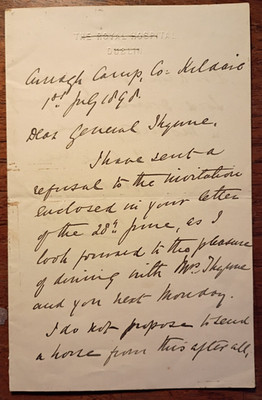 THE ROYAL HOSPITAL
DUBLIN
Curragh Camp, Co. Kildare
1st July 1898.
Dear General Thynne,
I have sent a
refusal to the invitation
enclosed in your letter
of the 28th June, as I
look forward to the pleasure
of dining with Mrs. Thynne
and you next Monday.
I do not propose to send
a horse from this after all,